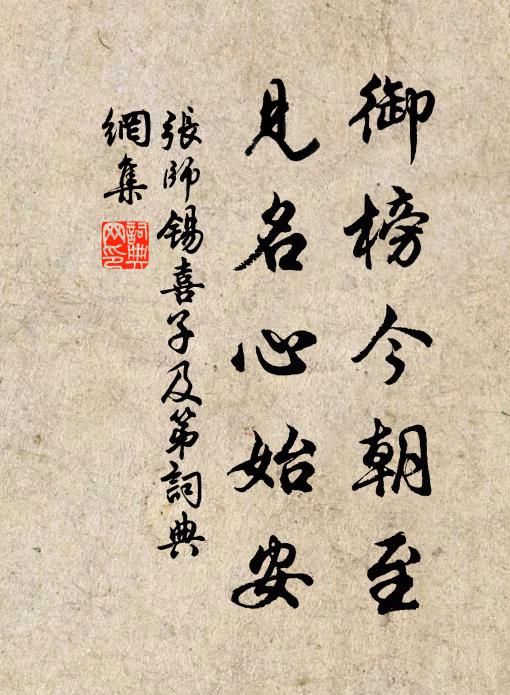 御榜今朝至
見名心始安
張師錫喜子及第詞典
網集
詞典
网印